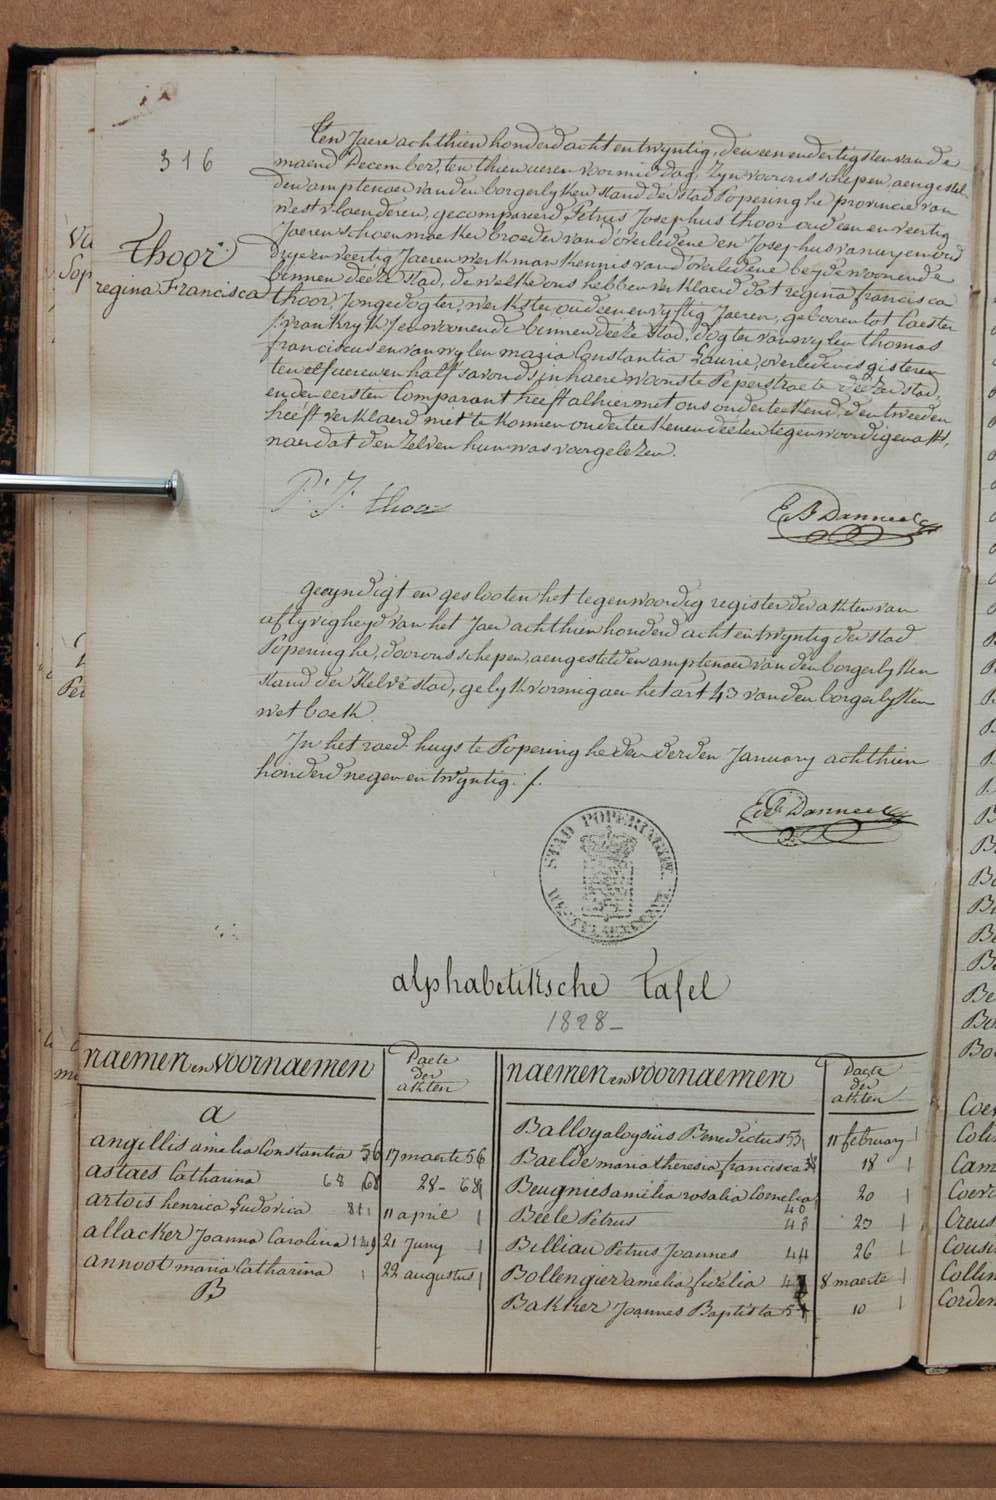 316
Thoor
regina Francisca
Ten Jaere achthien honderd acht en twyntig, den een en dertigsten van de
maend December, ten thien ueren voormiddag, Zyn voor ons schepen, aengestel-
den amptenaer van den borgerlyken stand der stad Poperinghe provincie van
westvlaenderen, gecompareerd Petrus Josephus thoor oud een en veertig
Jaeren schoenmaeker broeder van d'overledene en Josephus vanuxem oud
dry en veertig Jaeren werkman kennis van d'overledene beyde woonende
binnen deeze stad, de welke ons hebben verklaerd dat regina francisca
thoor Jongedogter, werkster, oud een en vyftig Jaeren, gebooren tot Caester
/:vrankryk:/ en woonende binnen deeze stad, dogter van wylen thomas
franciscus en van wylen maria Constantia Laurie, overleden is gisteren
ten elf ueren en half s'avonds in haere woonste Peperstraete deezer stad,
en den eersten Comparant heeft alhier met ons onderteekend, den tweeden
heeft verklaerd niet te konnen onderteekenen deezen tegenwoordigen akt,
naer dat den zelven hun was voorgelezen.
P: J: thoor
E B Danneel
geeyndigt en geslooten het tegenwoordig register der akten van
aflyvigheyd van het Jaer achthien honderd acht en twyntig der stad
Poperinghe, door ons schepen, aengestelden amptenaer van den borgerlyken
stand der zelve stad, gelykvormig aen het art 43 van den borgerlyken
wetboek.
In het raedhuys te Poperinghe den derden January achthien
honderd negen en twyntig. /.
E B Danneel
STAD POPERINGHE
alphabetiksche Tafel
1828
naemen en voornaemen
Daete der akten
naemen en voornaemen
Daete der akten
a
angillis amelia Constantia 56 17 maerte 56
astaes Catharina 68 68 28 - 68
artois henrica Ludovica 81 11 april
allacker Joanna Carolina 149 21 Juny
annoot maria Catharina 22 augustus
B
Balloy aloysius Benedictus 33 11 february
Baelde maria theresia francisca 38 18
Beugnies amelia rosalia Cornelia 40 20
Beele Petrus 43 23
Billiau Petrus Joannes 44 26
Bollengier amelia fidelia 4 8 maerte
Bakker Joannes Baptista 51 10